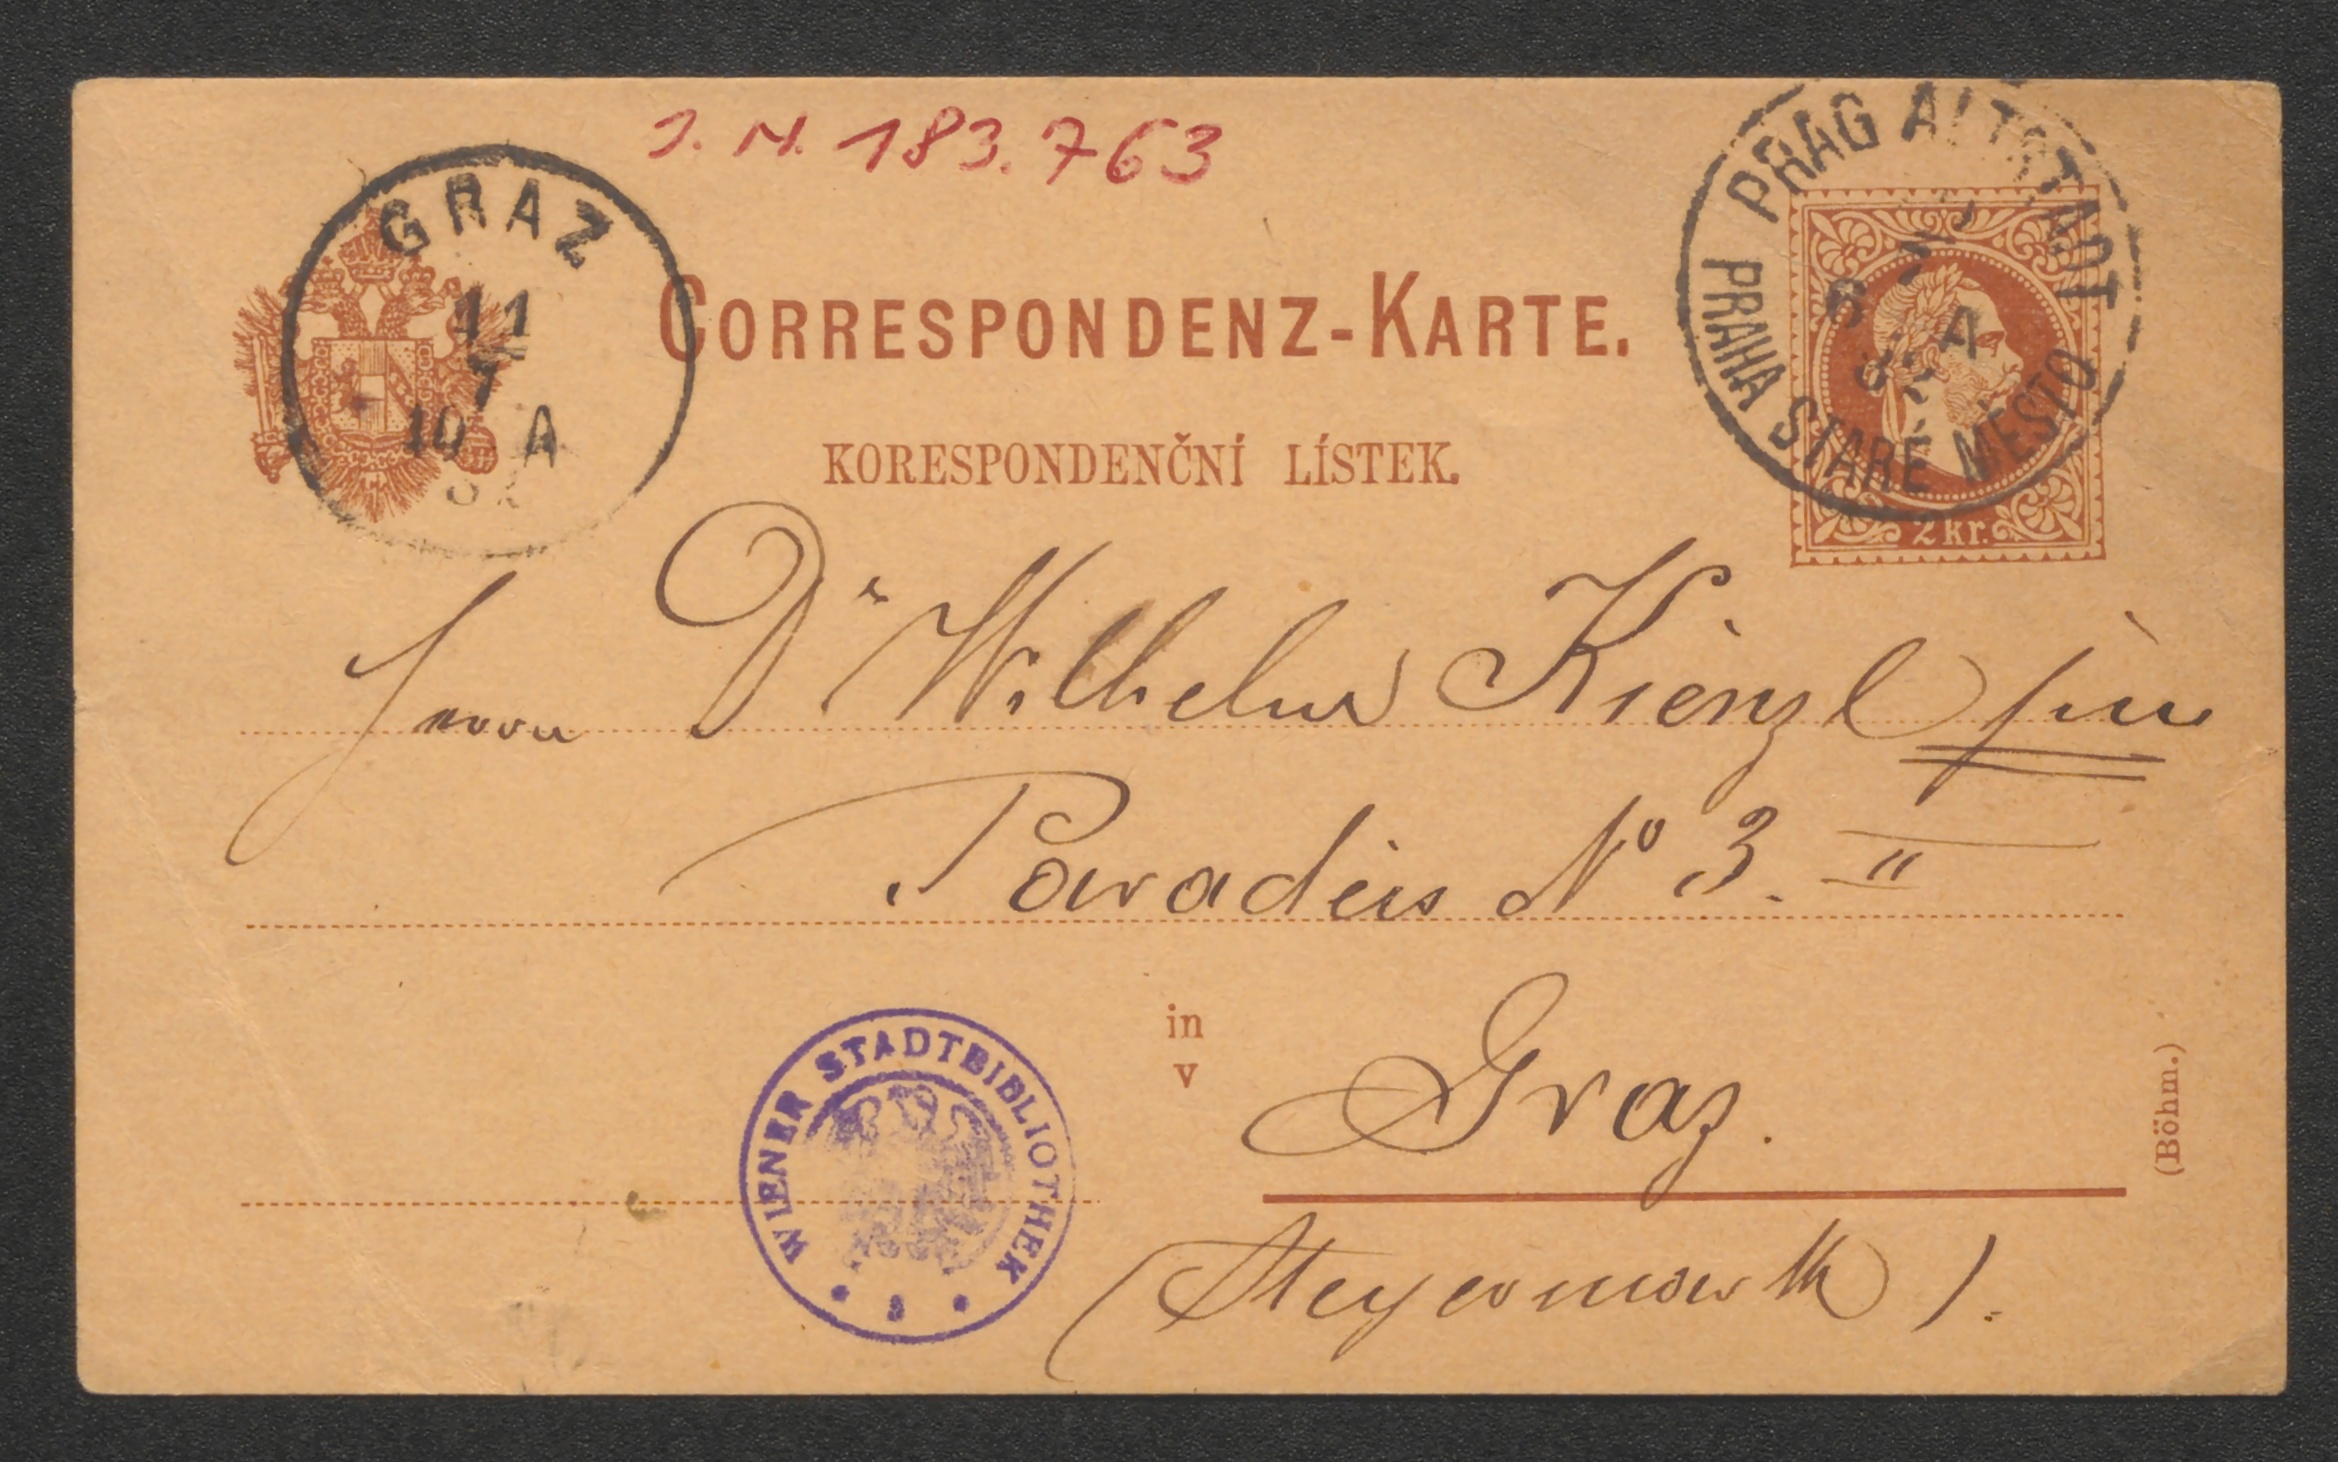 J. N. 183.763
GRAZ
11
7
10 A
82
PRAG ALTSTADT
7
6 A
82
PRAHA STARÉ MĚSTO
2 kr.
CORRESPONDENZ-KARTE.
KORESPONDENČNÍ LÍSTEK.
Herrn Dr Wilhelm Kienzl jun
Paradeis No 3. II
in
v
Graz.
(Steyermark).
WIENER STADTBIBLIOTHEK
(Böhm.)